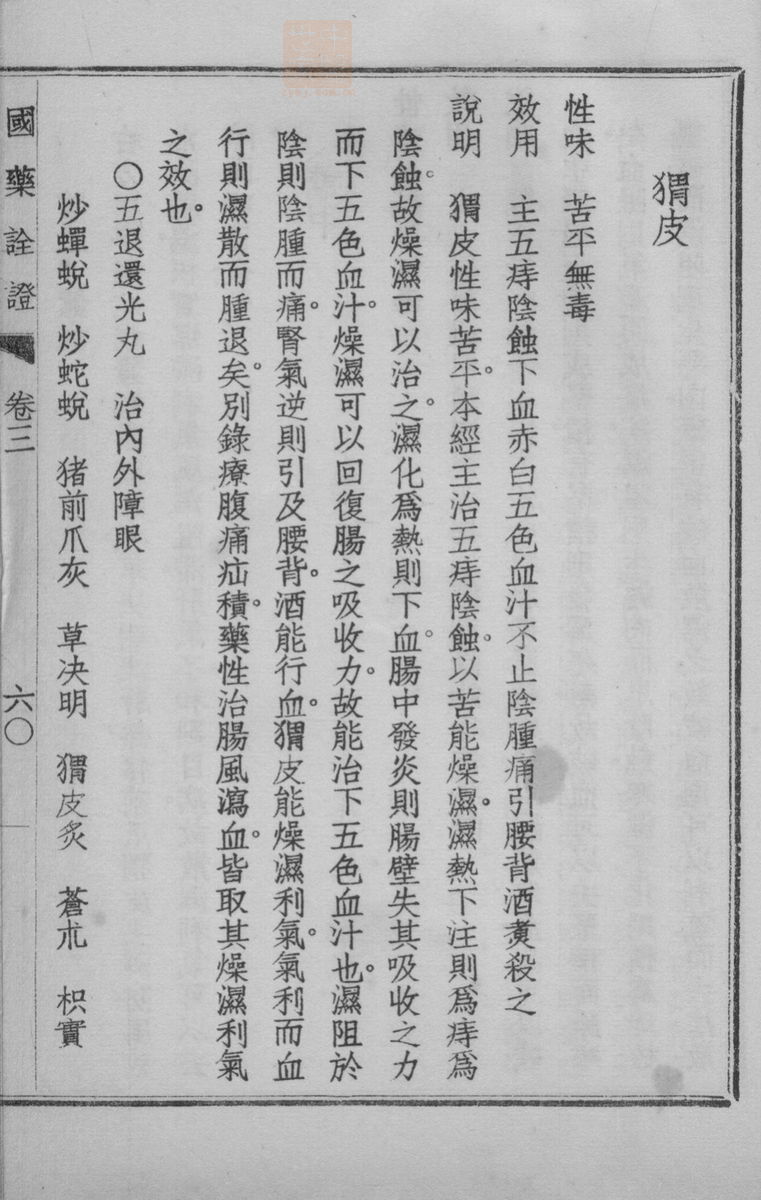 猬皮
性味　苦平無毒
效用　主五痔陰蝕下血赤白五色血汁不止陰腫痛引腰背酒煑殺之
說明　猬皮性味苦平。本經主治五痔陰蝕。以苦能燥濕。濕熱下注則爲痔爲
陰蝕。故燥濕可以治之。濕化爲熱則下血。腸中發炎則腸壁失其吸收之力
而下五色血汁。燥濕可以回復腸之吸收力。故能治下五色血汁也。濕阻於
陰則陰腫而痛。腎氣逆則引及腰背。酒能行血。猬皮能燥濕利氣。氣利而血
行則濕散而腫退矣。別錄療腹痛疝積。藥性治腸風瀉血。皆取其燥濕利氣
之效也。
〇五退還光丸　治內外障眼
炒蟬蛻　炒蛇蛻　猪前爪灰　草决明　猬皮炙　蒼朮　枳實
國藥詮證　卷三　六〇